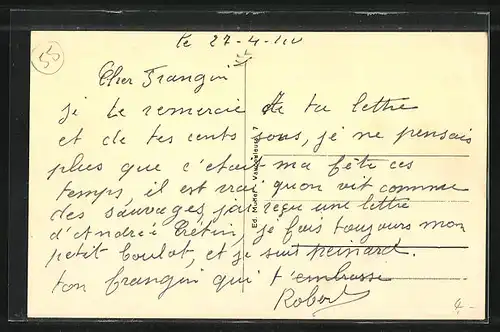 55
le 27-4-40
Cher Frangin
je te remercie de ta lettre
et de tes cents sous, je ne pensais
plus que c'était ma fête ces
temps, il est vrai qu'on vit comme
des sauvages, j'ai reçu une lettre
d'Andrée Crétin, je fais toujours mon
petit boulot, et je suis peinard.
ton frangin qui t'embrasse
Robert
4-